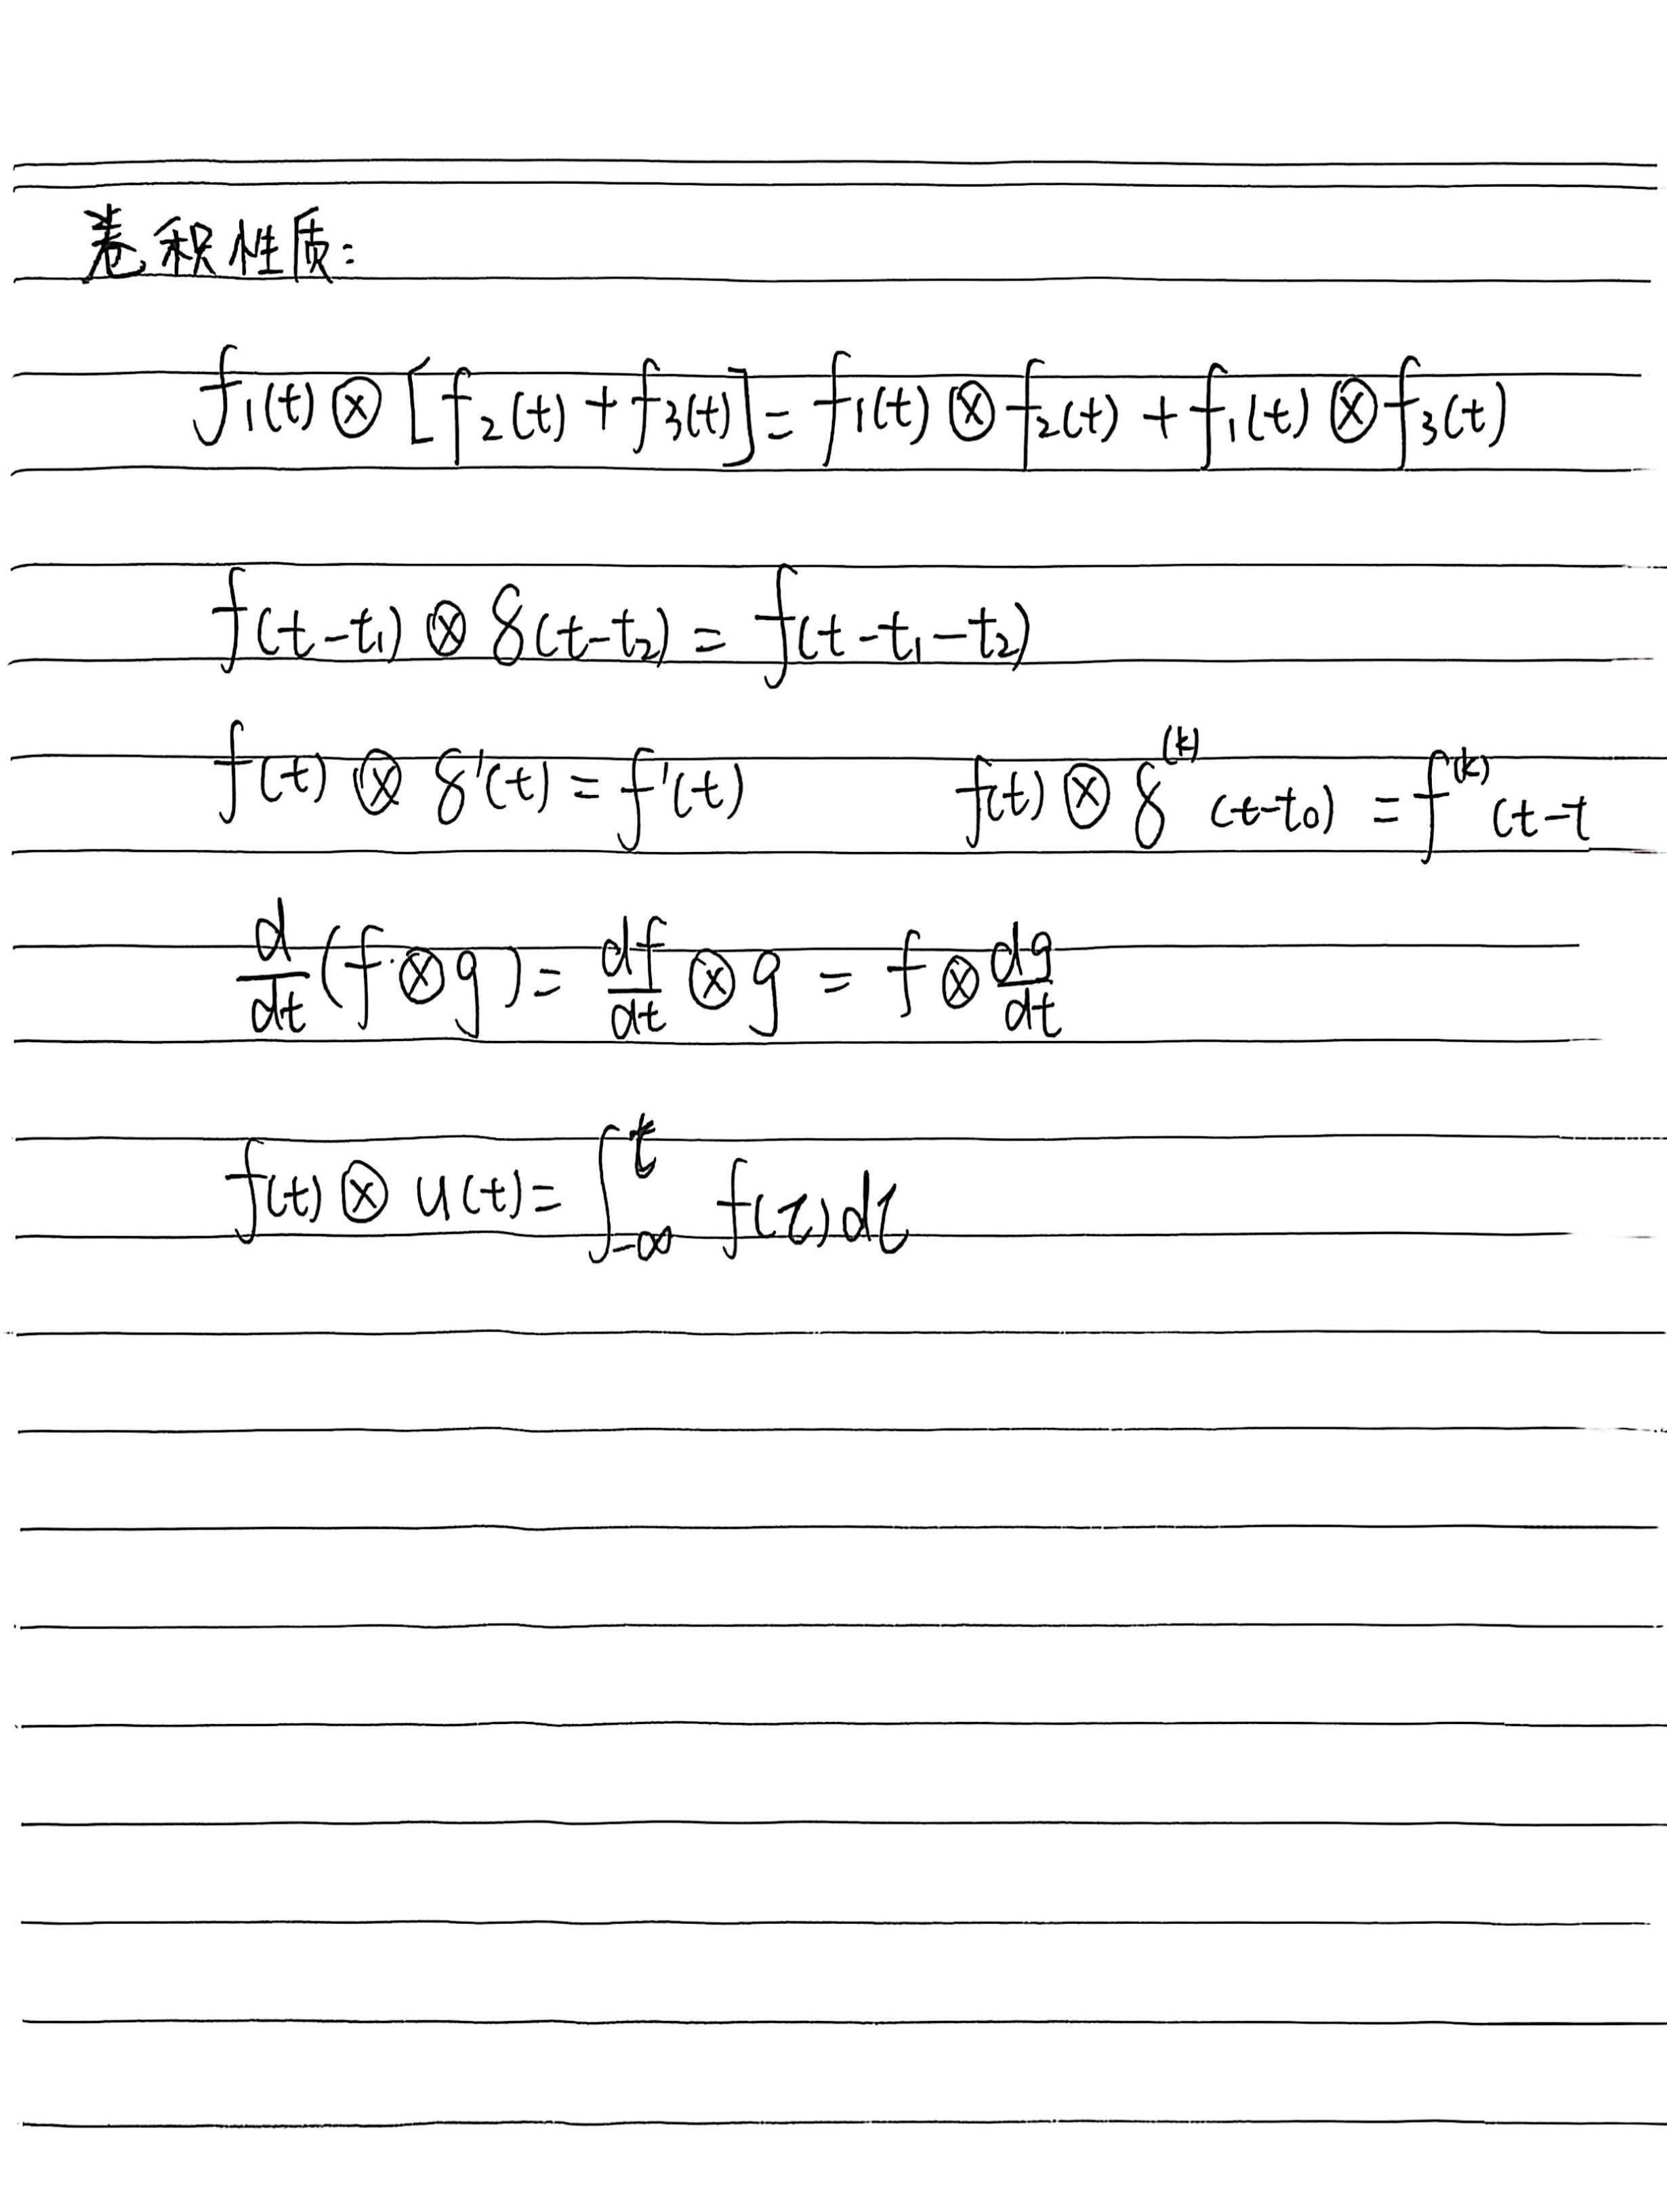 卷积性质:
f₁(t) ⊗ [f₂(t) + f₃(t)] = f₁(t) ⊗ f₂(t) + f₁(t) ⊗ f₃(t)
f(t-t₁) ⊗ δ(t-t₂) = f(t-t₁-t₂)
f(t) ⊗ δ'(t) = f'(t) f(t) ⊗ δ⁽ᵏ⁾(t-t₀) = f⁽ᵏ⁾(t-t
d/dt (f ⊗ g) = df/dt ⊗ g = f ⊗ dg/dt
f(t) ⊗ u(t) = ∫_{-∞}^{t} f(τ)dτ